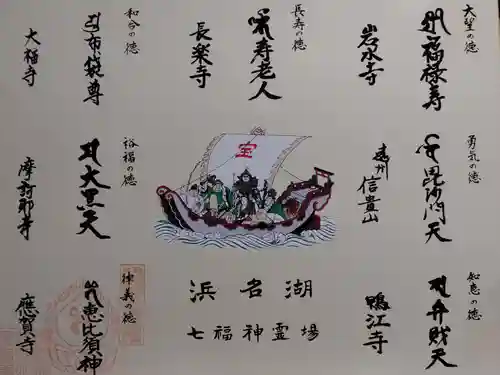 大望の徳
福禄寿
岩水寺
長寿の徳
寿老人
長楽寺
和合の徳
布袋尊
大福寺
勇気の徳
毘沙門天
遠州
信貴山
宝
裕福の徳
大黒天
摩訶耶寺
知恵の徳
弁財天
鴨江寺
浜名湖
七福神霊場
律義の徳
恵比須神
應賀寺